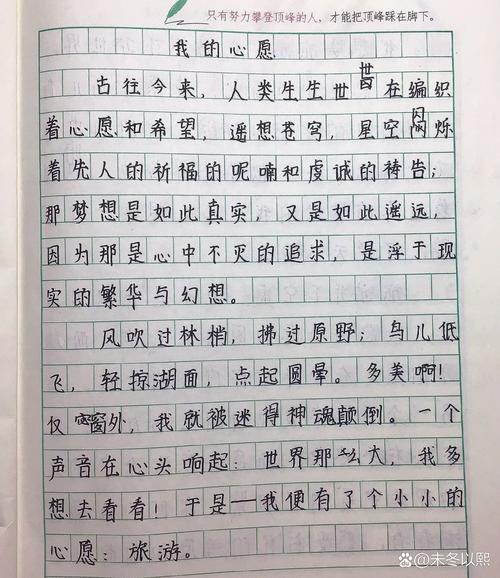 只有努力攀登顶峰的人，才能把顶峰踩在脚下。
我的心愿
古往今来，人类生生世世在编织
着心愿和希望，遥想苍穹，星空闪烁
着先人的祈福的呢喃和虔诚的祷告；
那梦想是如此真实，又是如此遥远，
因为那是心中不灭的追求，是浮于现
实的繁华与幻想。
风吹过林梢，拂过原野；鸟儿低
飞，轻掠湖面，点起圆晕。多美啊！
仅窗外，我就被迷得神魂颠倒。一个
声音在心头响起：世界那么大，我多
想去看看！于是——我便有了个小小的
心愿：旅游。
Bai百家号@未冬以熙